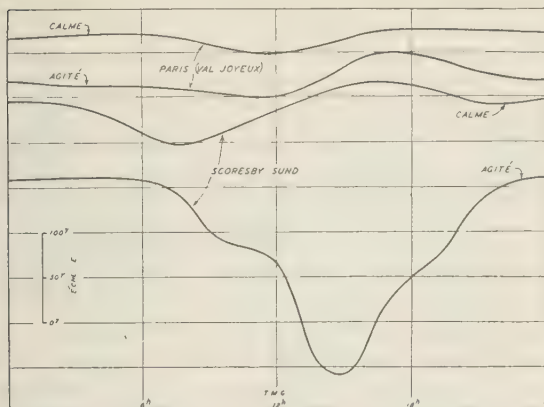 CALME
PARIS (VAL JOYEUX)
AGITÉ
CALME
SCORESBY SUND
AGITÉ
100γ
50γ
0γ
TMG
6ʰ
12ʰ
18ʰ